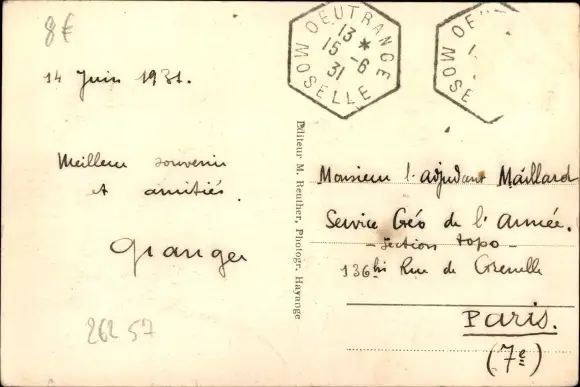 8€
14 Juin 1931.
Meilleur souvenir
et amitiés.
Granger
262 57
OEUTRANGE
13 *
15 -6
31
MOSELLE
OE
1
MOSE
Editeur M. Reuther, Photogr. Hayange
Monsieur l'adjudant Maillard
Service Géo de l'Armée.
- Section topo -
136 bis Rue de Grenelle
Paris.
(7e)